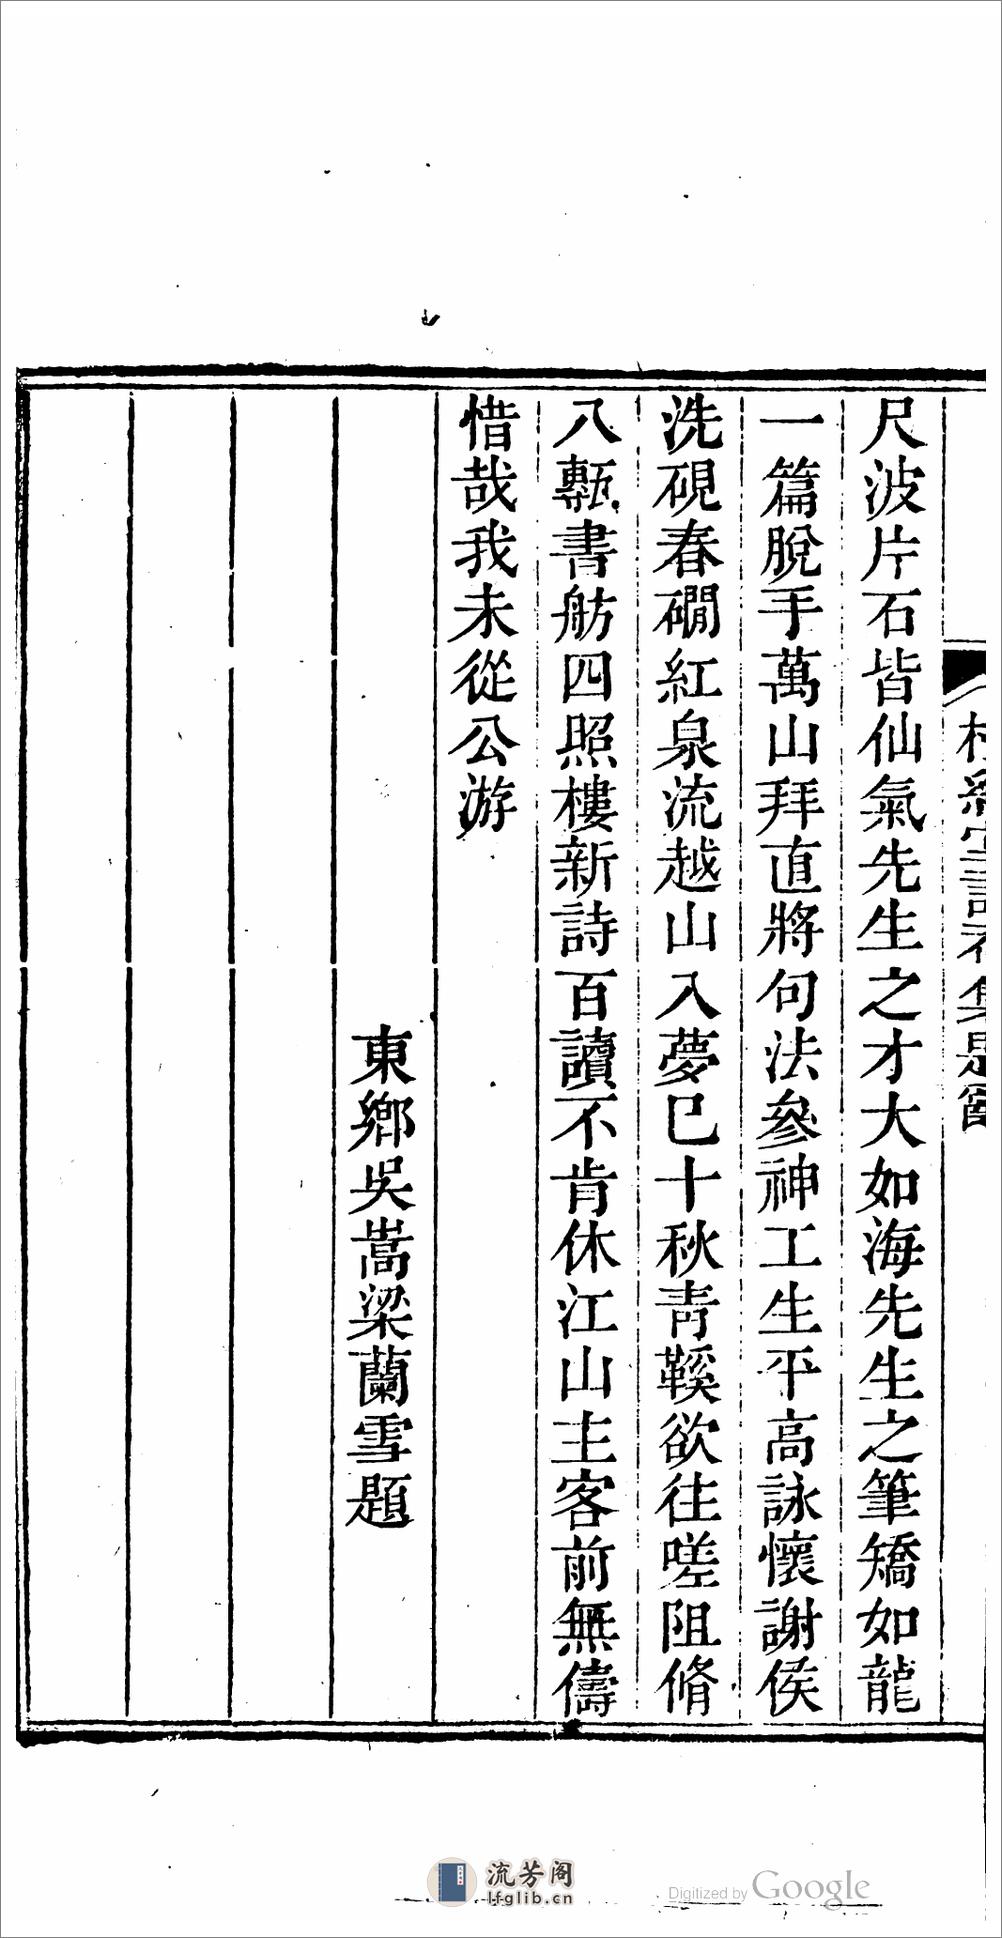 尺波片石皆仙氣先生之才大如海先生之筆矯如龍
一篇脫手萬山拜直將句法參神工生平高詠懷謝侯
洗硯春磵紅泉流越山入夢已十秋青鞵欲往嗟阻脩
八甎書舫四照樓新詩百讀不肯休江山主客前無儔
惜哉我未從公游
東鄉吳嵩梁蘭雪題
流芳阁
lfglib.cn
Digitized by Google